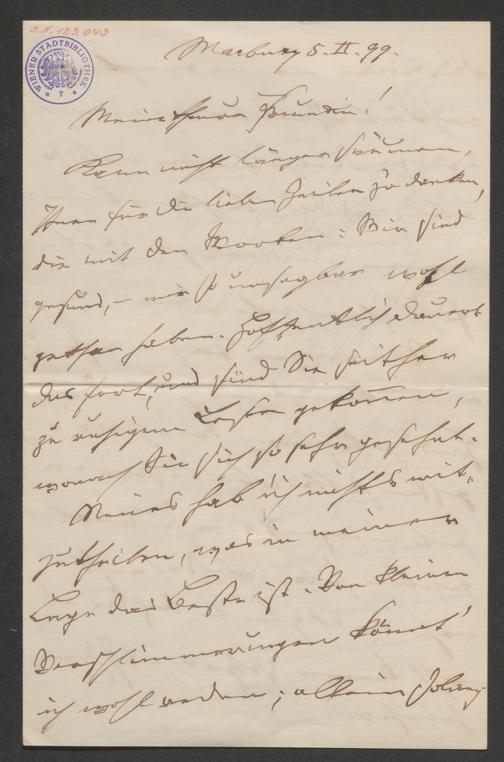 J.N. 123.043
WIENER STADTBIBLIOTHEK
* 7 *
Marburg 5. II. 99.
Meine theure Freundin!
Kann nicht länger säumen,
Ihnen für die lieben Zeilen zu danken,
die mit den Worten: Wir sind
gesund, – mir so unsagbar wohl
gethan haben. Hoffentlich dauert
das fort, und sind Sie seither
zu ruhigem Leben gekommen,
wonach Sie sich so sehr gesehnt.
Neues hab' ich nichts mit-
zutheilen, was in meiner
Lage das Beste ist. Von kleinen
Verschlimmerungen könnt'
ich wohl reden; allein solang